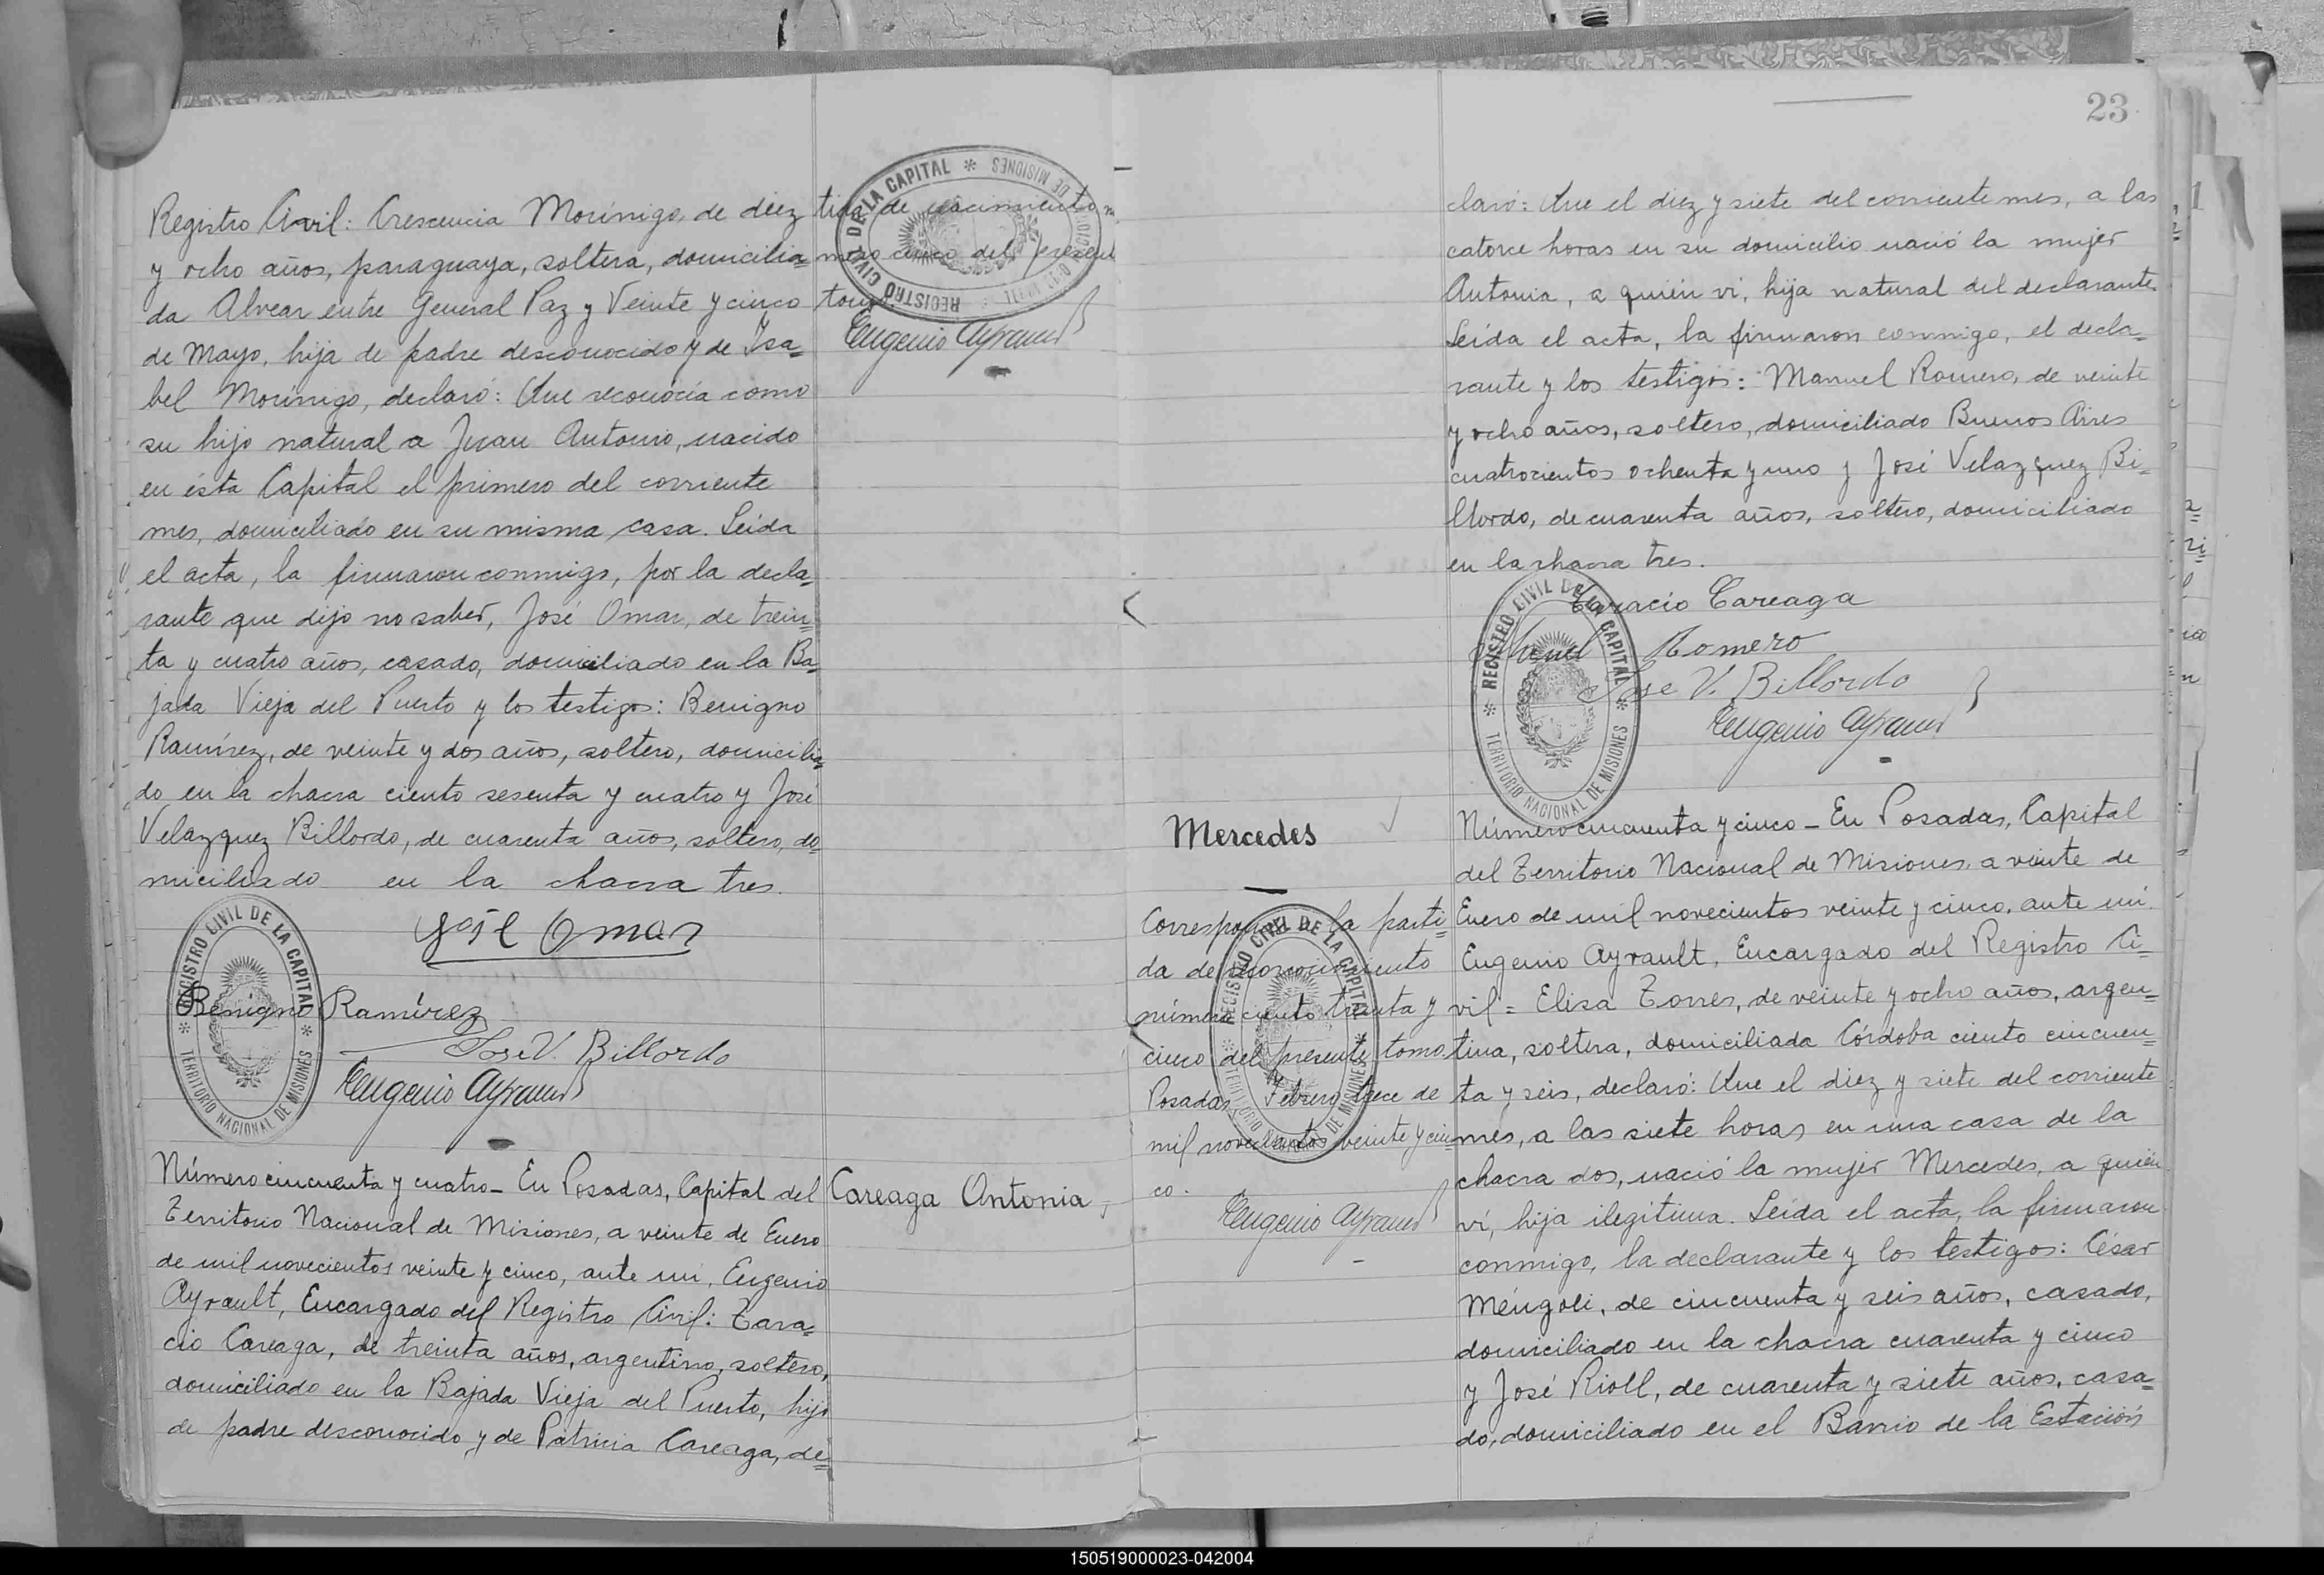 Registro Civil: Crescencia Morínigo, de diez
y ocho años, paraguaya, soltera, domicilia=
da Alvear entre General Paz y Veinte y cinco
de Mayo, hija de padre desconocido y de Isa=
bel Morínigo, declaró: Que reconocía como
su hijo natural a Juan Antonio, nacido
en ésta Capital el primero del corriente
mes, domiciliado en su misma casa. Leída
el acta, la firmaron conmigo, por la decla=
rante que dijo no saber, José Omar, de trein=
ta y cuatro años, casado, domiciliado en la Ba=
jada Vieja del Puerto y los testigos: Benigno
Ramírez, de veinte y dos años, soltero, domicilia=
do en la chacra ciento sesenta y cuatro y José
Velazquez Billordo, de cuarenta años, soltero, do=
miciliado en la chacra tres.
José Omar
Benigno Ramírez
José V. Billordo
Eugenio Ayrault
REGISTRO CIVIL DE LA CAPITAL
* TERRITORIO NACIONAL DE MISIONES *
tida de nacimiento
cinco del present
tomo
REGISTRO CIVIL DE LA CAPITAL * DE MISIONES
Eugenio Ayrault
Número cincuenta y cuatro_ En Posadas, Capital del
Territorio Nacional de Misiones, a veinte de Enero
de mil novecientos veinte y cinco, ante mí, Eugenio
Ayrault, Encargado del Registro Civil: Tara=
cio Careaga, de treinta años, argentino, soltero,
domiciliado en la Bajada Vieja del Puerto, hijo
de padre desconocido y de Patricia Careaga, de=
Careaga Antonia
23
claró: Que el diez y siete del corriente mes, a las
catorce horas en su domicilio nació la mujer
Antonia, a quién ví, hija natural del declarante.
Leída el acta, la firmaron conmigo, el decla=
rante y los testigos: Manuel Romero, de veinte
y ocho años, soltero, domiciliado Buenos Aires
cuatrocientos ochenta y uno y José Velazquez Bi=
llordo, de cuarenta años, soltero, domiciliado
en la chacra tres.
Taracio Careaga
Manuel Romero
Jose V. Billordo
Eugenio Ayrault
REGISTRO CIVIL DE LA CAPITAL
* TERRITORIO NACIONAL DE MISIONES *
Mercedes
Corresponde la parti=
da de reconocimiento
número ciento treinta y
cinco del presente tomo.
Posadas, Febrero trece de
mil novecientos veinte y cin=
co.
Eugenio Ayrault
REGISTRO CIVIL DE LA CAPITAL
* TERRITORIO NACIONAL DE MISIONES *
Número cincuenta y cinco_ En Posadas, Capital
del Territorio Nacional de Misiones, a veinte de
Enero de mil novecientos veinte y cinco, ante mí.
Eugenio Ayrault, Encargado del Registro Ci=
vil= Elisa Torres, de veinte y ocho años, argen=
tina, soltera, domiciliada Córdoba ciento cincuen=
ta y seis, declaró: Que el diez y siete del corriente
mes, a las siete horas en una casa de la
chacra dos, nació la mujer Mercedes, a quién
ví, hija ilegítima. Leída el acta, la firmaron
conmigo, la declarante y los testigos: César
Méngoli, de cincuenta y seis años, casado,
domiciliado en la chacra cuarenta y cinco
y José Rioll, de cuarenta y siete años, casa=
do, domiciliado en el Barrio de la Estación
150519000023-042004